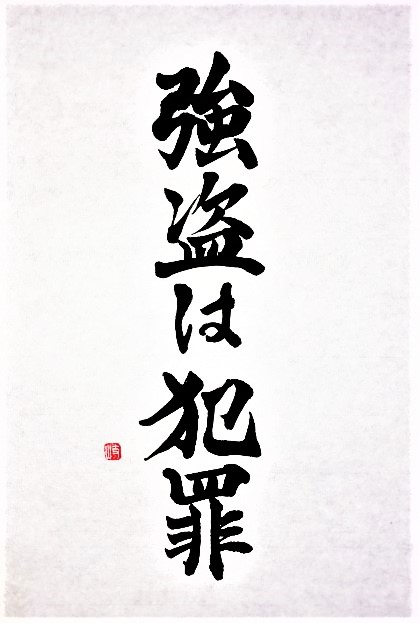 強盗は犯罪